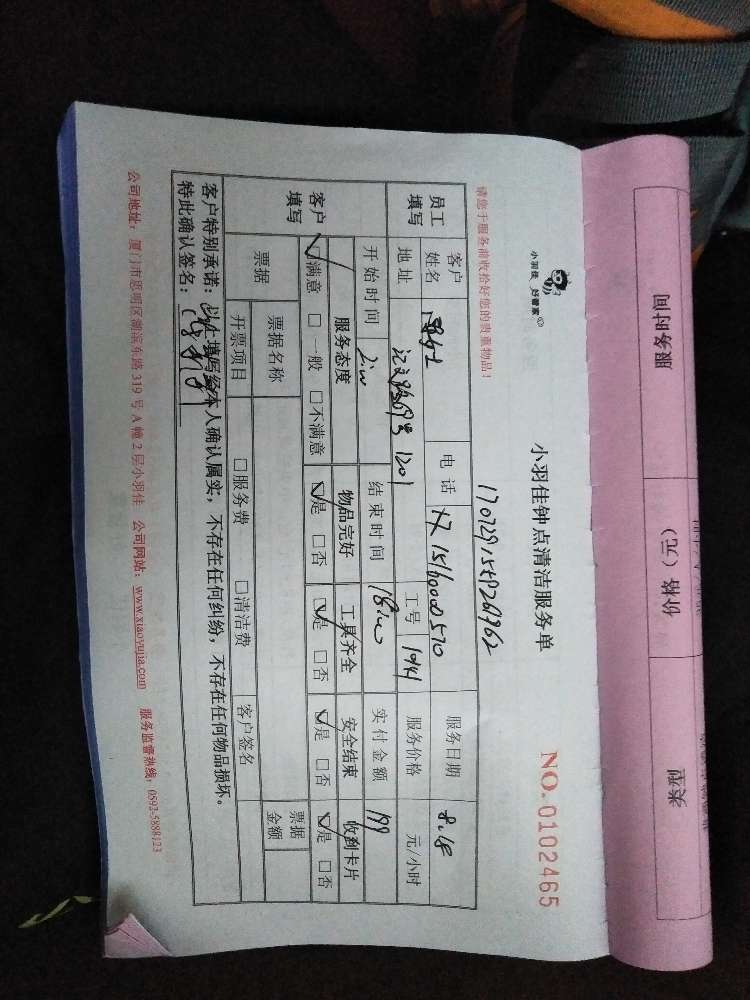 服务时间
价格（元）
类型
小羽佳 好管家®
小羽佳钟点清洁服务单
NO. 0102465
请您于服务前收拾好您的贵重物品！
员工填写
客户姓名
电话 15160000570
服务日期 8.18
地址 69号 1201
工号 1041
服务价格 元/小时
开始时间
结束时间 18:00
实付金额 199
客户填写
服务态度 物品完好 工具齐全 安全结束 收到卡片
☑满意 □一般 □不满意 ☑是 □否 ☑是 □否 ☑是 □否 ☑是 □否
票据
票据名称
票据金额
开票项目 □服务费 □清洁费 客户签名
客户特别承诺：以上填写经本人确认属实，不存在任何纠纷，不存在任何物品损坏。
特此确认签名：
公司地址：厦门市思明区湖滨东路319号A幢2层小羽佳 公司网站：www.xiaoyujia.com 服务监督热线：0592-5888123